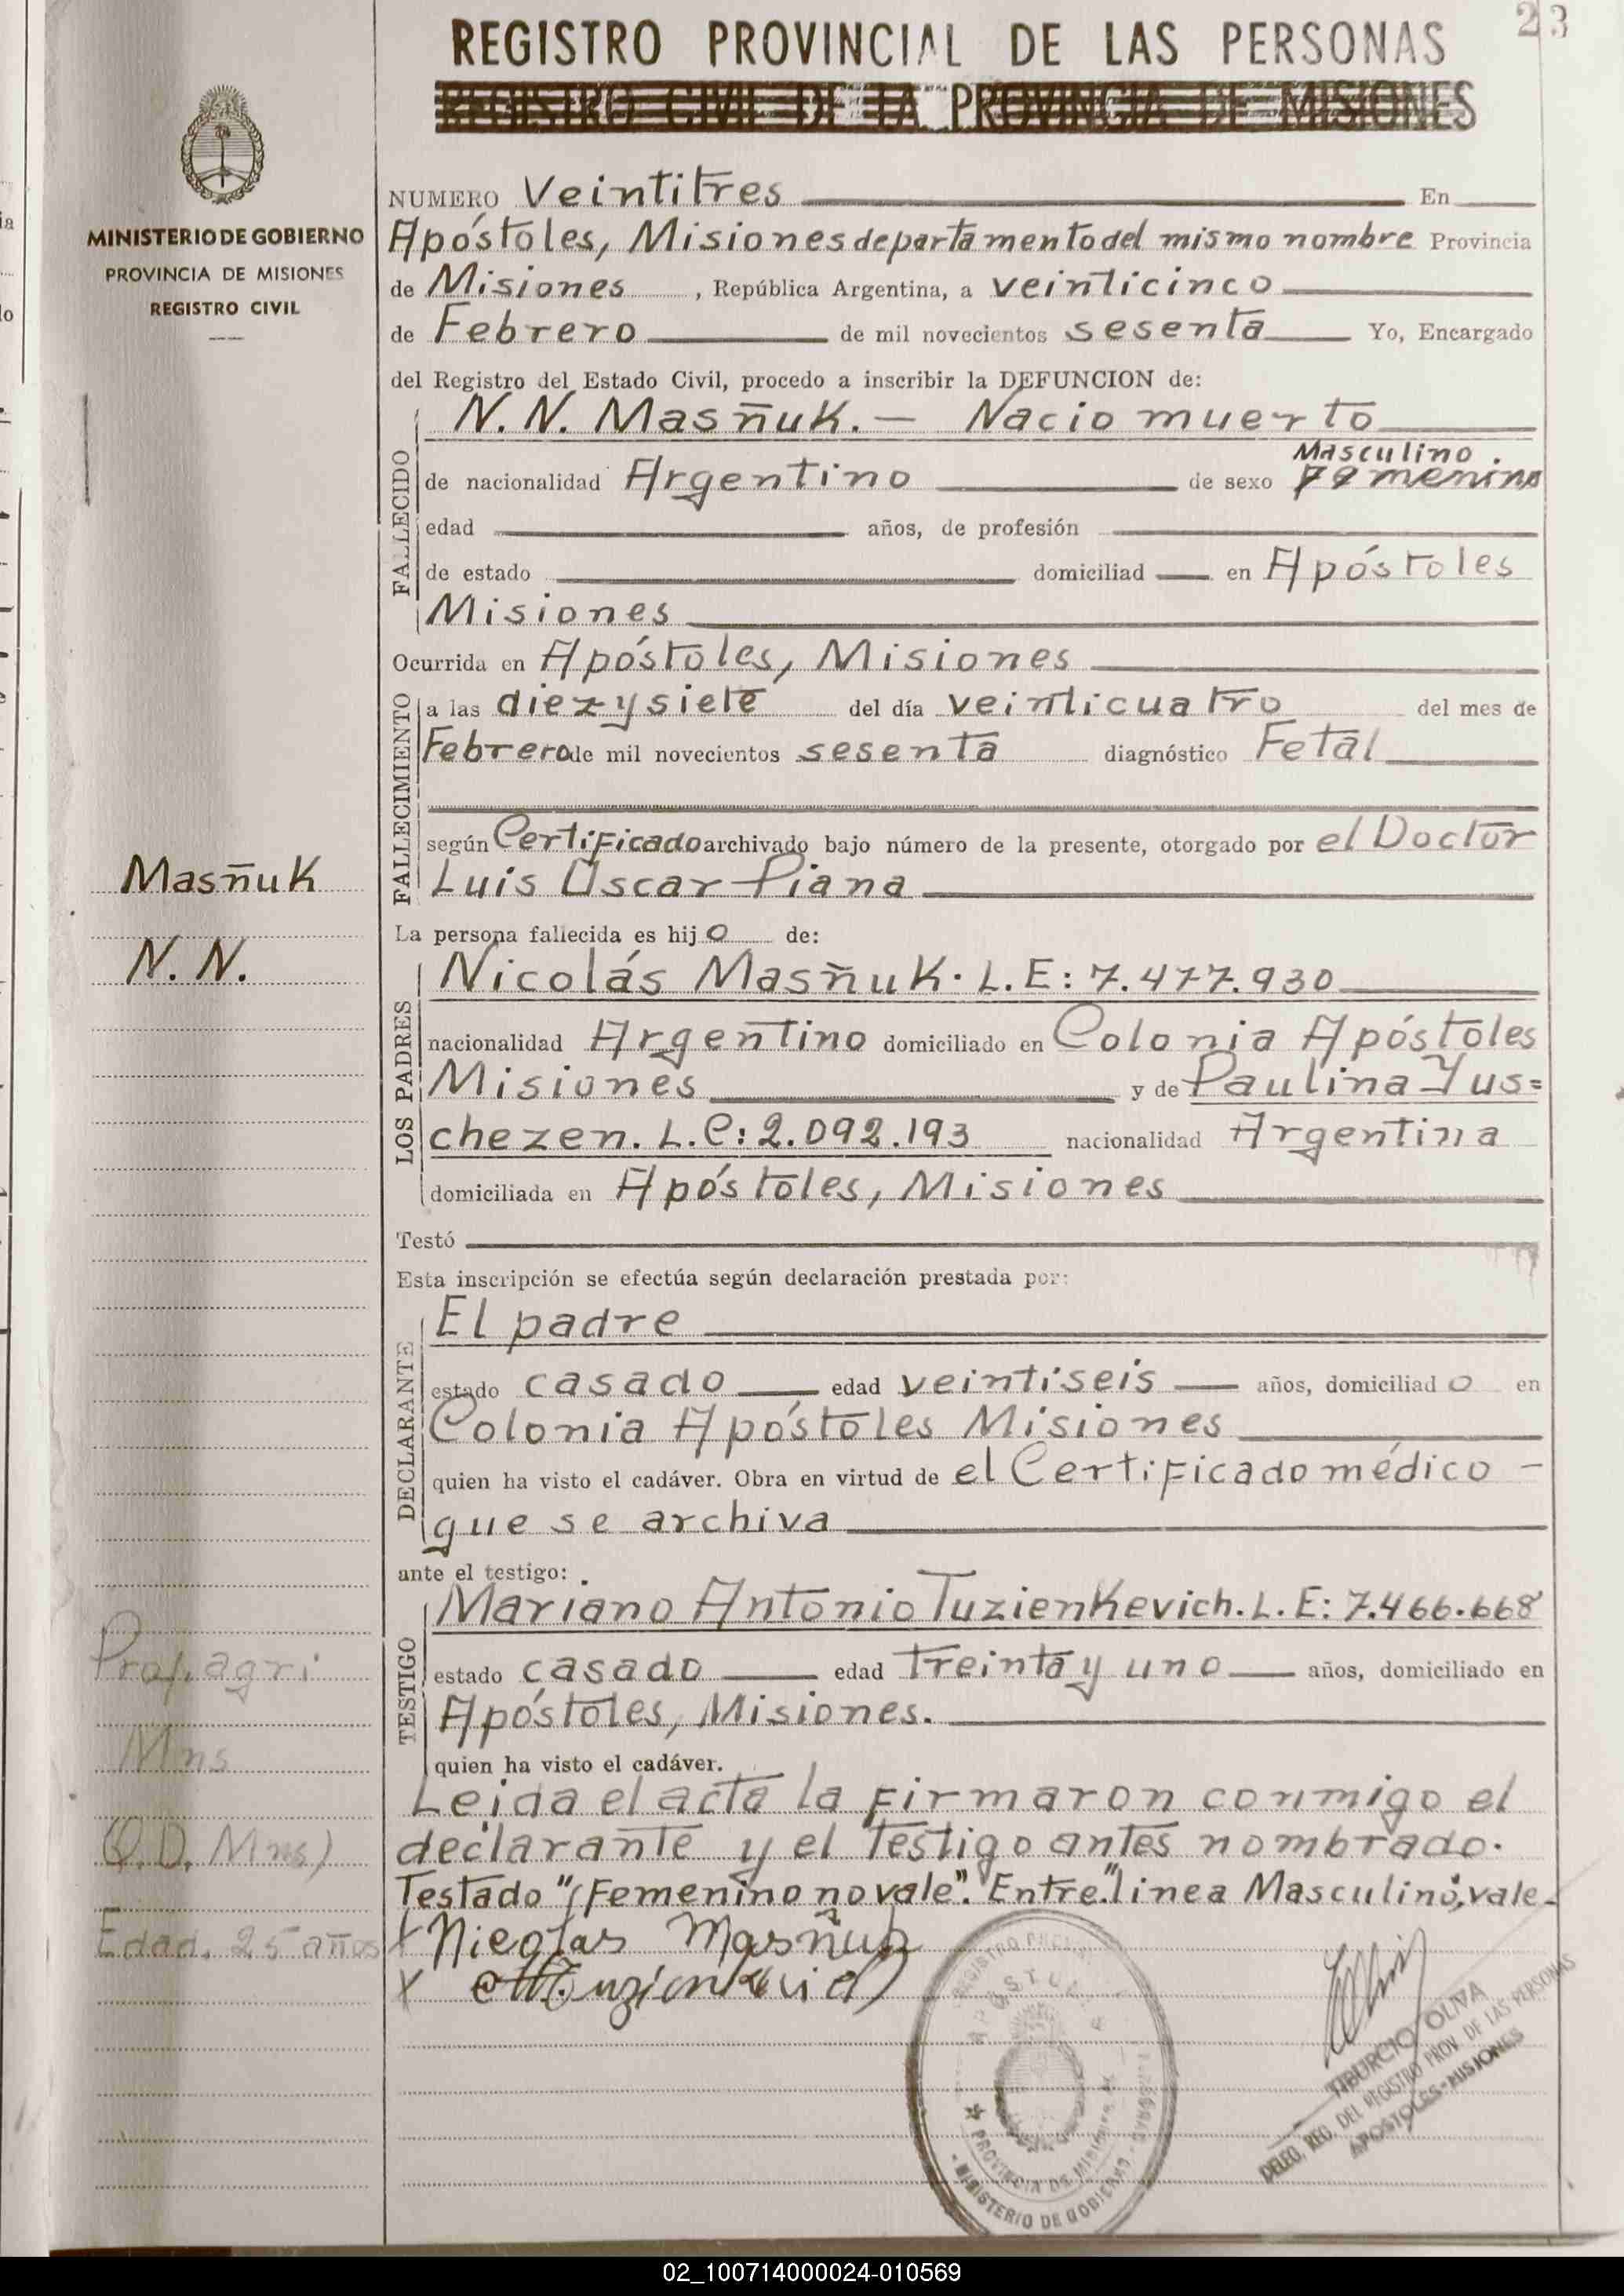 23
REGISTRO PROVINCIAL DE LAS PERSONAS
REGISTRO CIVIL DE LA PROVINCIA DE MISIONES
MINISTERIO DE GOBIERNO
PROVINCIA DE MISIONES
REGISTRO CIVIL
NUMERO Veintitres En
Apóstoles, Misiones departamento del mismo nombre Provincia
de Misiones, República Argentina, a veinticinco
de Febrero de mil novecientos sesenta Yo, Encargado
del Registro del Estado Civil, procedo a inscribir la DEFUNCION de:
FALLECIDO
N. N. Masñuk. – Nacio muerto
Masculino.
de nacionalidad Argentino de sexo Femenino
edad años, de profesión
de estado domiciliad en Apóstoles
Misiones
Ocurrida en Apóstoles, Misiones
FALLECIMIENTO
a las diez y siete del día veinticuatro del mes de
Febrero de mil novecientos sesenta diagnóstico Fetal
según Certificado archivado bajo número de la presente, otorgado por el Doctor
Luis Oscar Piana
Masñuk
N. N.
La persona fallecida es hijo de:
LOS PADRES
Nicolás Masñuk. L.E: 7.477.930
nacionalidad Argentino domiciliado en Colonia Apóstoles
Misiones y de Paulina Yus=
chezen. L.C: 2.092.193 nacionalidad Argentina
domiciliada en Apóstoles, Misiones
Testó
Esta inscripción se efectúa según declaración prestada por:
DECLARANTE
El padre
estado casado edad veintiseis años, domiciliado en
Colonia Apóstoles Misiones
quien ha visto el cadáver. Obra en virtud de el Certificado médico –
que se archiva
ante el testigo:
TESTIGO
Mariano Antonio Tuzienkevich. L.E: 7.466.668
estado casado edad treinta y uno años, domiciliado en
Apóstoles, Misiones.
quien ha visto el cadáver.
Prof. agri
Mns
(Q.D. Mns)
Edad. 25 años
Leida el acta la firmaron conmigo el
declarante y el testigo antes nombrado.
Testado "(Femenino no vale". "Entre" linea Masculino", vale
X Nicolas Masñuk
X
TIBURCIO OLIVA
DELEG. REG. DEL REGISTRO PROV. DE LAS PERSONAS
APOSTOLES - MISIONES
APOSTOLES
PROVINCIA DE MISIONES
MINISTERIO DE GOBIERNO
02_100714000024-010569